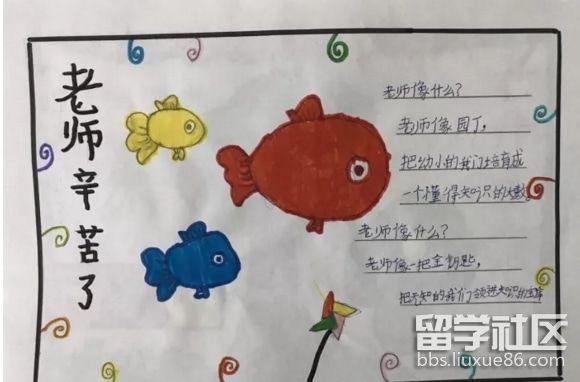 老师辛苦了
老师像什么?
老师像园丁,
把幼小的我们培育成
一个懂得知识的大树。
老师像什么?
老师像一把金钥匙,
把无知的我们领进知识的
留学社区
bbs.liuxue86.com